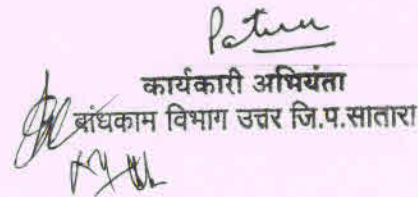 कार्यकारी अभियंता
बांधकाम विभाग उत्तर जि.प.सातारा